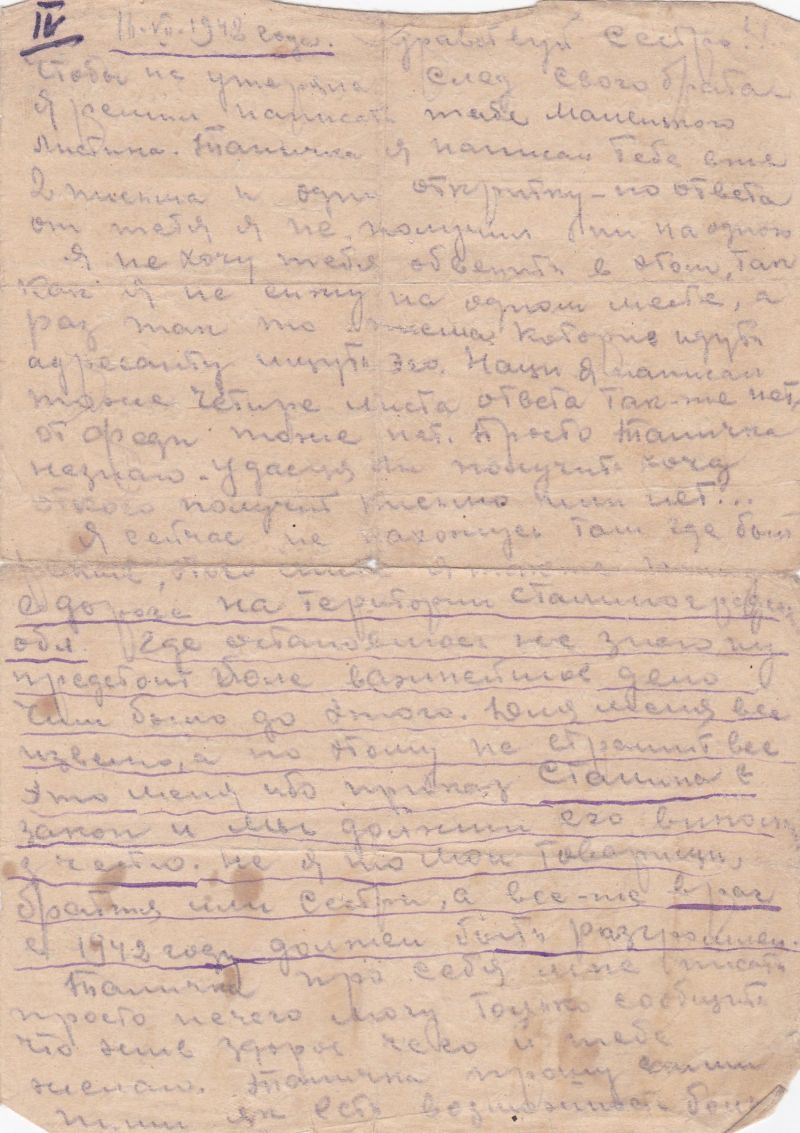 IV 16.VII.1942 года. Здравствуй Сестро!!
Чтобы не утеряна след свого брата
Я решил написать тебе маленького
листика. Таничка я написал тебе уже
2 письма и одну откритку – но ответа
от тебя я не получил ни на одною
Я не хочу тебя обвенить в этом, так
как я не сижу на одном месте, а
раз так то письма которие идуть
адресанту ищуть эго. Наци я написал
тоже четире листа ответа так-же нет,
от Феди тоже нет. Просто Таничка
незнаю – удасця ли получить хочя
откого получить письмо или нет...
Я сейчас не нахожусь там где был
раньше, этого листа я
с дороге на територии Сталинградской
обл. Где остановлюсь не знаю ну
предстоит боле важнейшое дело
чим было до этого. Для меня все
извесно, а по этому не страшит все
это меня ибо приказ Сталина –
закон и мы должни его виполн
з честю. не я то мои товарищи,
браття или сестри, а все-же враг
в 1942 году должен быть разгромлен.
Таничка про себя мне писать
просто нечего могу только сообщить
что жив здоров чего и тебе
желаю. Таничка прошу
пиши як есть возможность бо